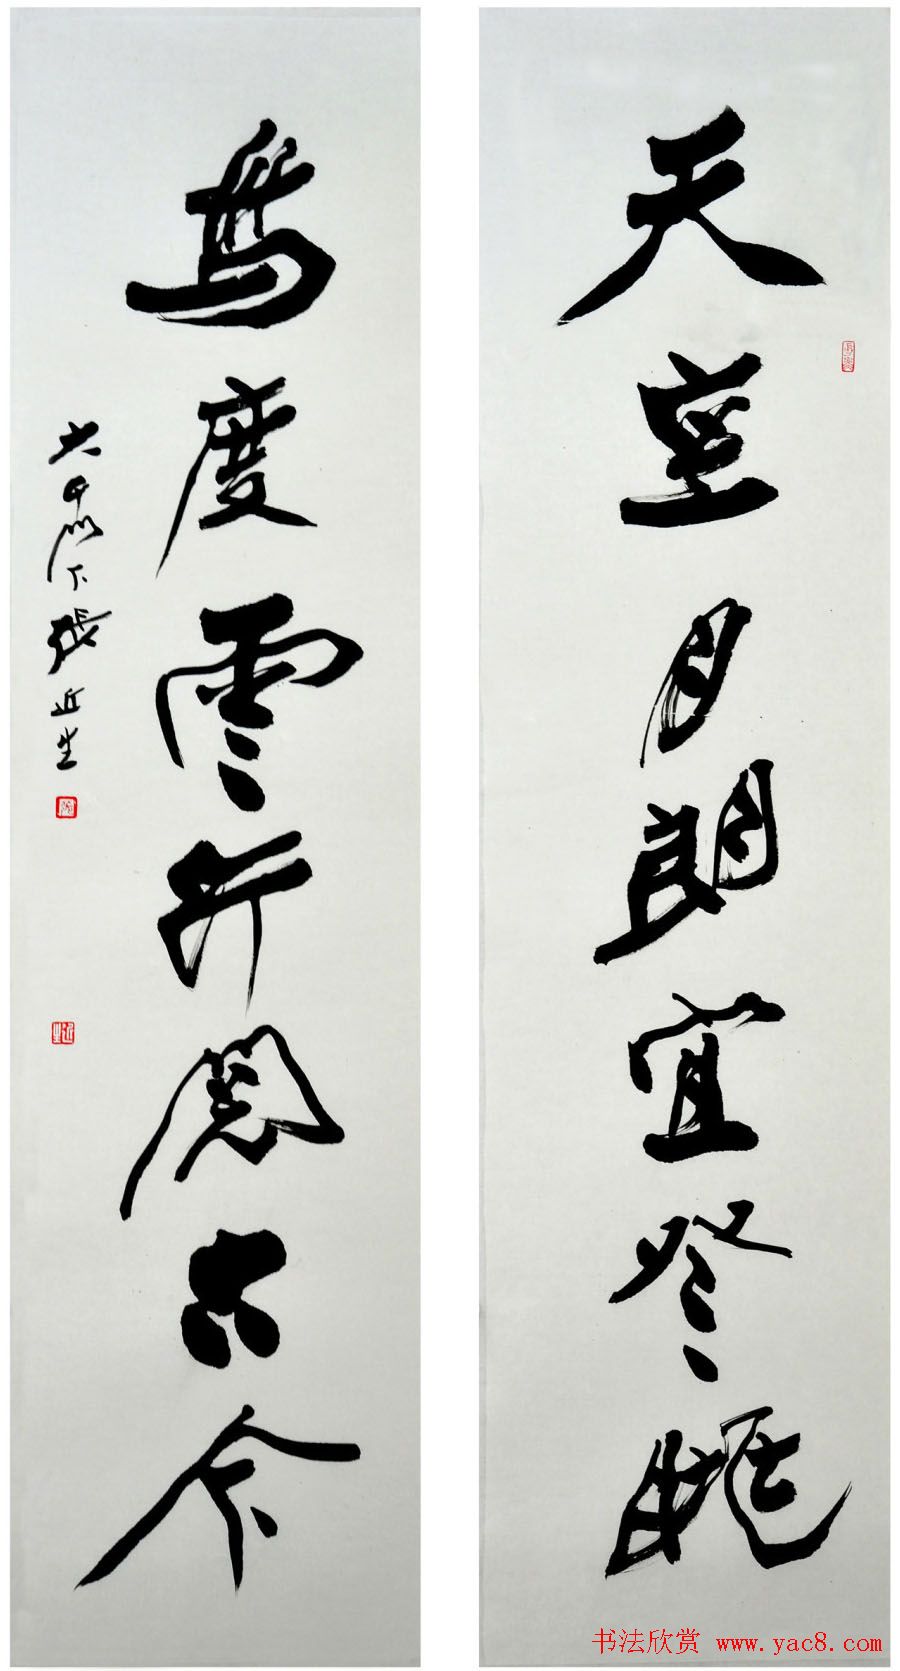 天空月朗宜登眺
鳥度雲行閱古今
大千門下張近生
书法欣赏 www.yac8.com